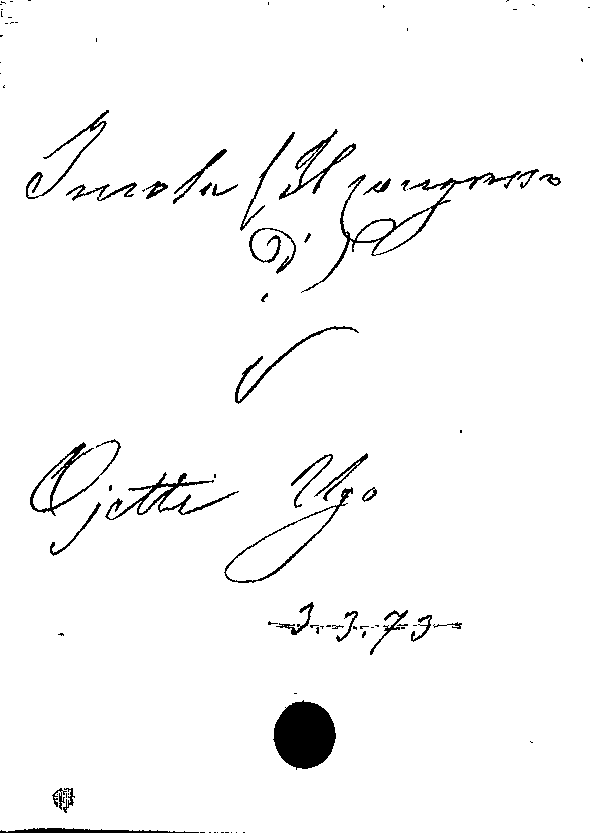 Imola (Il congresso
D')
Ojetti Ugo
3.3.73